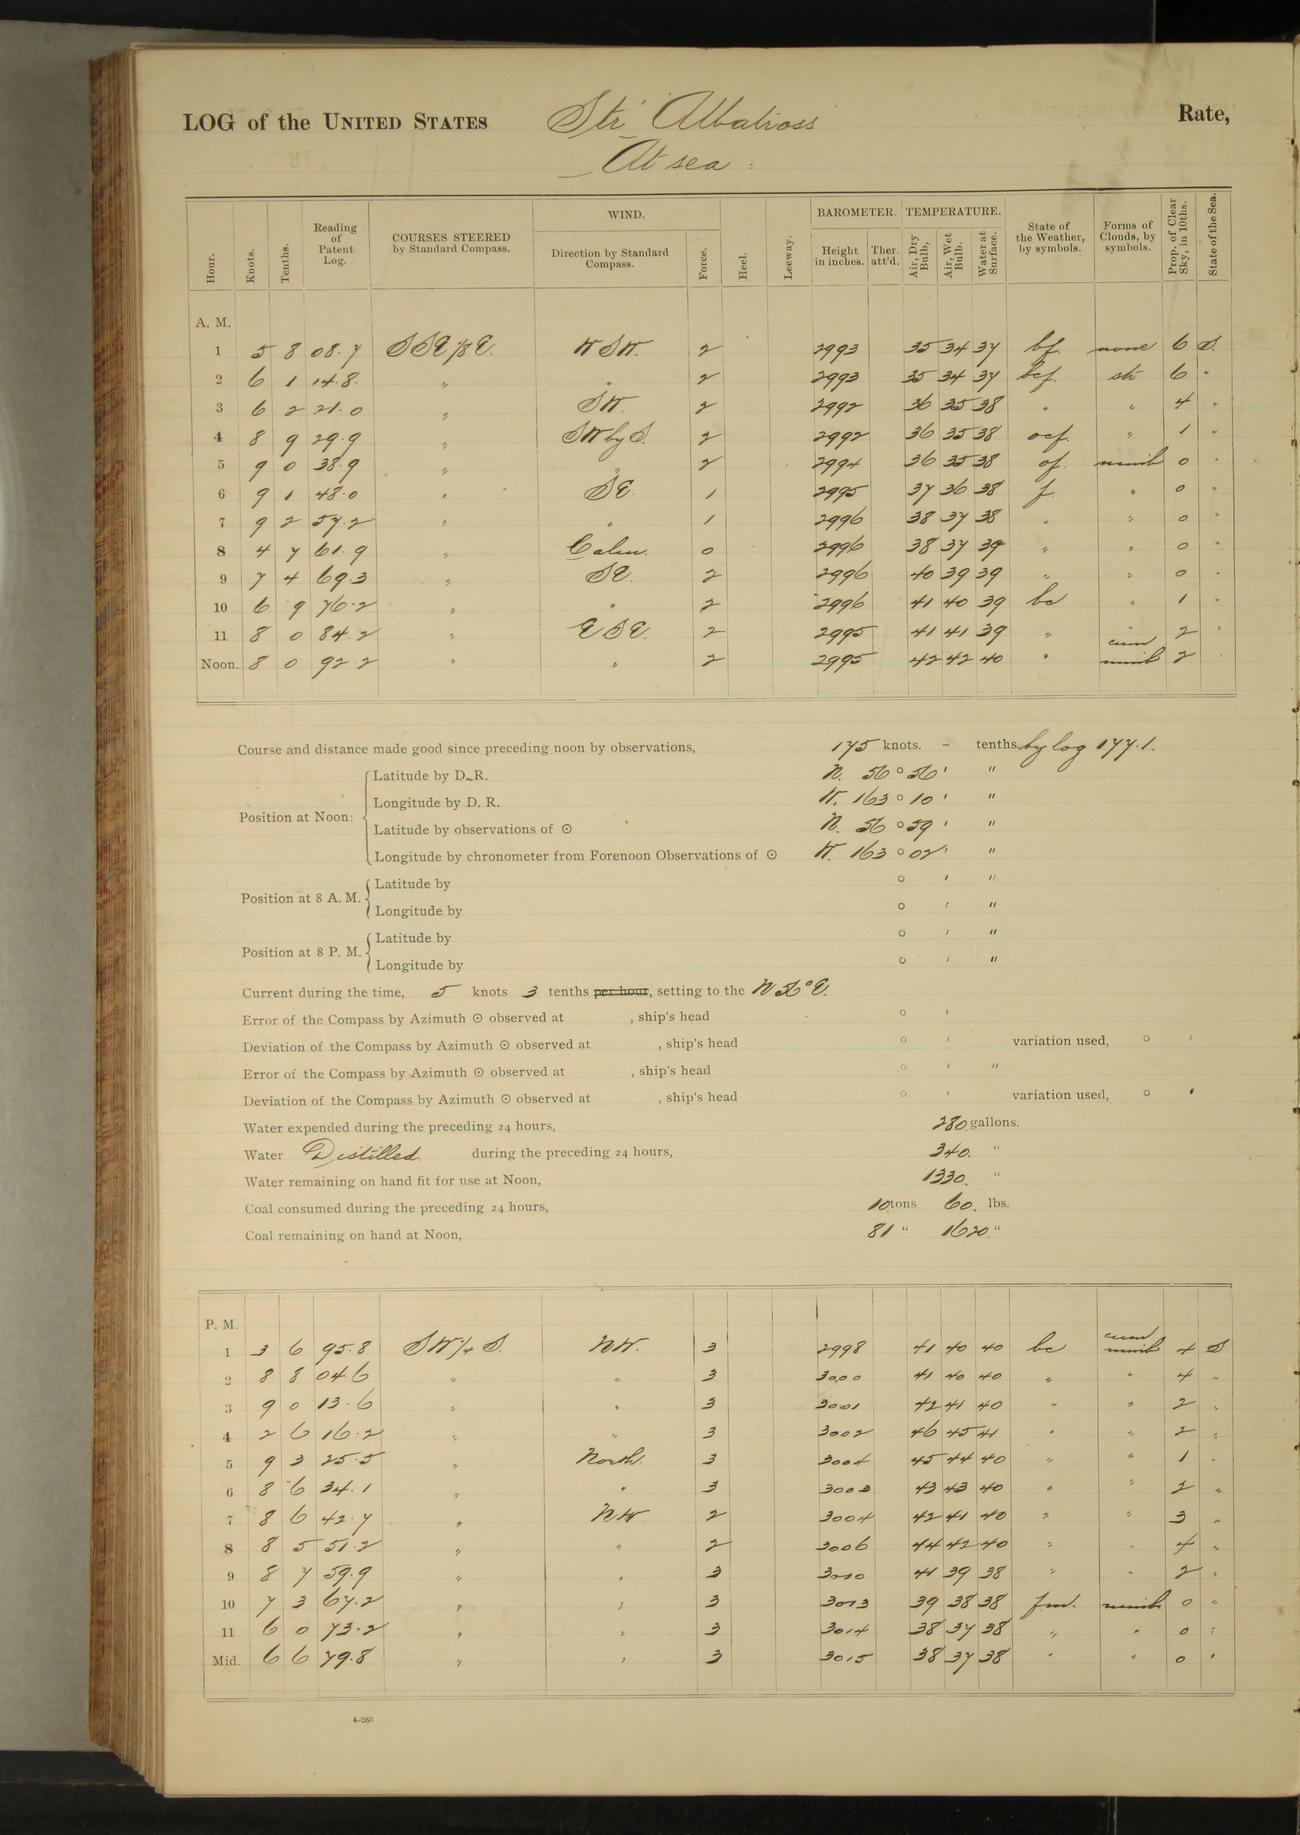 LOG of the UNITED STATES Str Albatross Rate,
At sea
WIND. BAROMETER. TEMPERATURE.
Hour. Knots. Tenths. Reading of Patent Log. COURSES STEERED by Standard Compass. Direction by Standard Compass. Force. Heel. Leeway. Height in inches. Ther. att'd. Air, Dry Bulb, Air, Wet Bulb. Water at Surface. State of the Weather, by symbols. Forms of Clouds, by symbols. Prop. of Clear Sky, in 10ths. State of the Sea.
A. M.
1 5 8 08.7 SSE 1/8 E. WSW. 2 2993 35 34 37 bf. none 6 S.
2 6 1 14.8. " " 2 2993 35 34 37 bcf. str 6 "
3 6 2 21.0 " SW. 2 2992 36 35 38 " " 4 "
4 8 9 29.9 " SW by S. 2 2992 36 35 38 ocf. " 1 "
5 9 0 38.9 " " 2 2994 36 35 38 of. nimb 0 "
6 9 1 48.0 " SE. 1 2995 37 36 38 f. " 0 "
7 9 2 57.2 " " 1 2996 38 37 38 " " 0 "
8 4 7 61.9 " Calm. 0 2996 38 37 39 " " 0 "
9 7 4 69.3 " SE. 2 2996 40 39 39 " " 0 "
10 6 9 76.2 " " 2 2996 41 40 39 bc " 1 "
11 8 0 84.2 " ESE. 2 2995 41 41 39 " " 2 "
cum
Noon. 8 0 92.2 " " 2 2995 42 42 40 " nimb 2
Course and distance made good since preceding noon by observations, 175 knots. – tenths by log 177.1.
Latitude by D. R. N. 56 ° 56 ' "
Longitude by D. R. W. 163 ° 10 ' "
Position at Noon:
Latitude by observations of ☉ N. 56 ° 59 ' "
Longitude by chronometer from Forenoon Observations of ☉ W. 163 ° 02 ' "
Latitude by ° ' "
Position at 8 A. M.
Longitude by ° ' "
Latitude by ° ' "
Position at 8 P. M.
Longitude by ° ' "
Current during the time, 5 knots 3 tenths per hour, setting to the N 56° E.
Error of the Compass by Azimuth ☉ observed at , ship's head ° '
Deviation of the Compass by Azimuth ☉ observed at , ship's head ° ' variation used, ° '
Error of the Compass by Azimuth ☉ observed at , ship's head ° ' "
Deviation of the Compass by Azimuth ☉ observed at , ship's head ° ' variation used, ° '
Water expended during the preceding 24 hours, 280 gallons.
Water Distilled during the preceding 24 hours, 340. "
Water remaining on hand fit for use at Noon, 1330. "
Coal consumed during the preceding 24 hours, 10 tons 60. lbs.
Coal remaining on hand at Noon, 81 " 1620. "
P. M.
cum
1 3 6 95.8 SW 1/4 S. NW. 3 2998 41 40 40 bc nimb 4 S
2 8 8 04.6 " " 3 3000 41 40 40 " " 4 "
3 9 0 13.6 " " 3 3001 42 41 40 " " 2 "
4 2 6 16.2 " " 3 3002 46 45 41 " " 2 "
5 9 3 25.5 " North. 3 3004 45 44 40 " " 1 "
6 8 6 34.1 " " 3 3003 43 43 40 " " 2 "
7 8 6 42.7 " NW 2 3004 42 41 40 " " 3 "
8 8 5 51.2 " " 2 3006 44 42 40 " " 4 "
9 8 7 59.9 " " 3 3010 41 39 38 " " 2 "
10 7 3 67.2 " " 3 3013 39 38 38 fm. nimb 0 "
11 6 0 73.2 " " 3 3014 38 37 38 " " 0 "
Mid. 6 6 79.8 " " 3 3015 38 37 38 " " 0 "
4–265